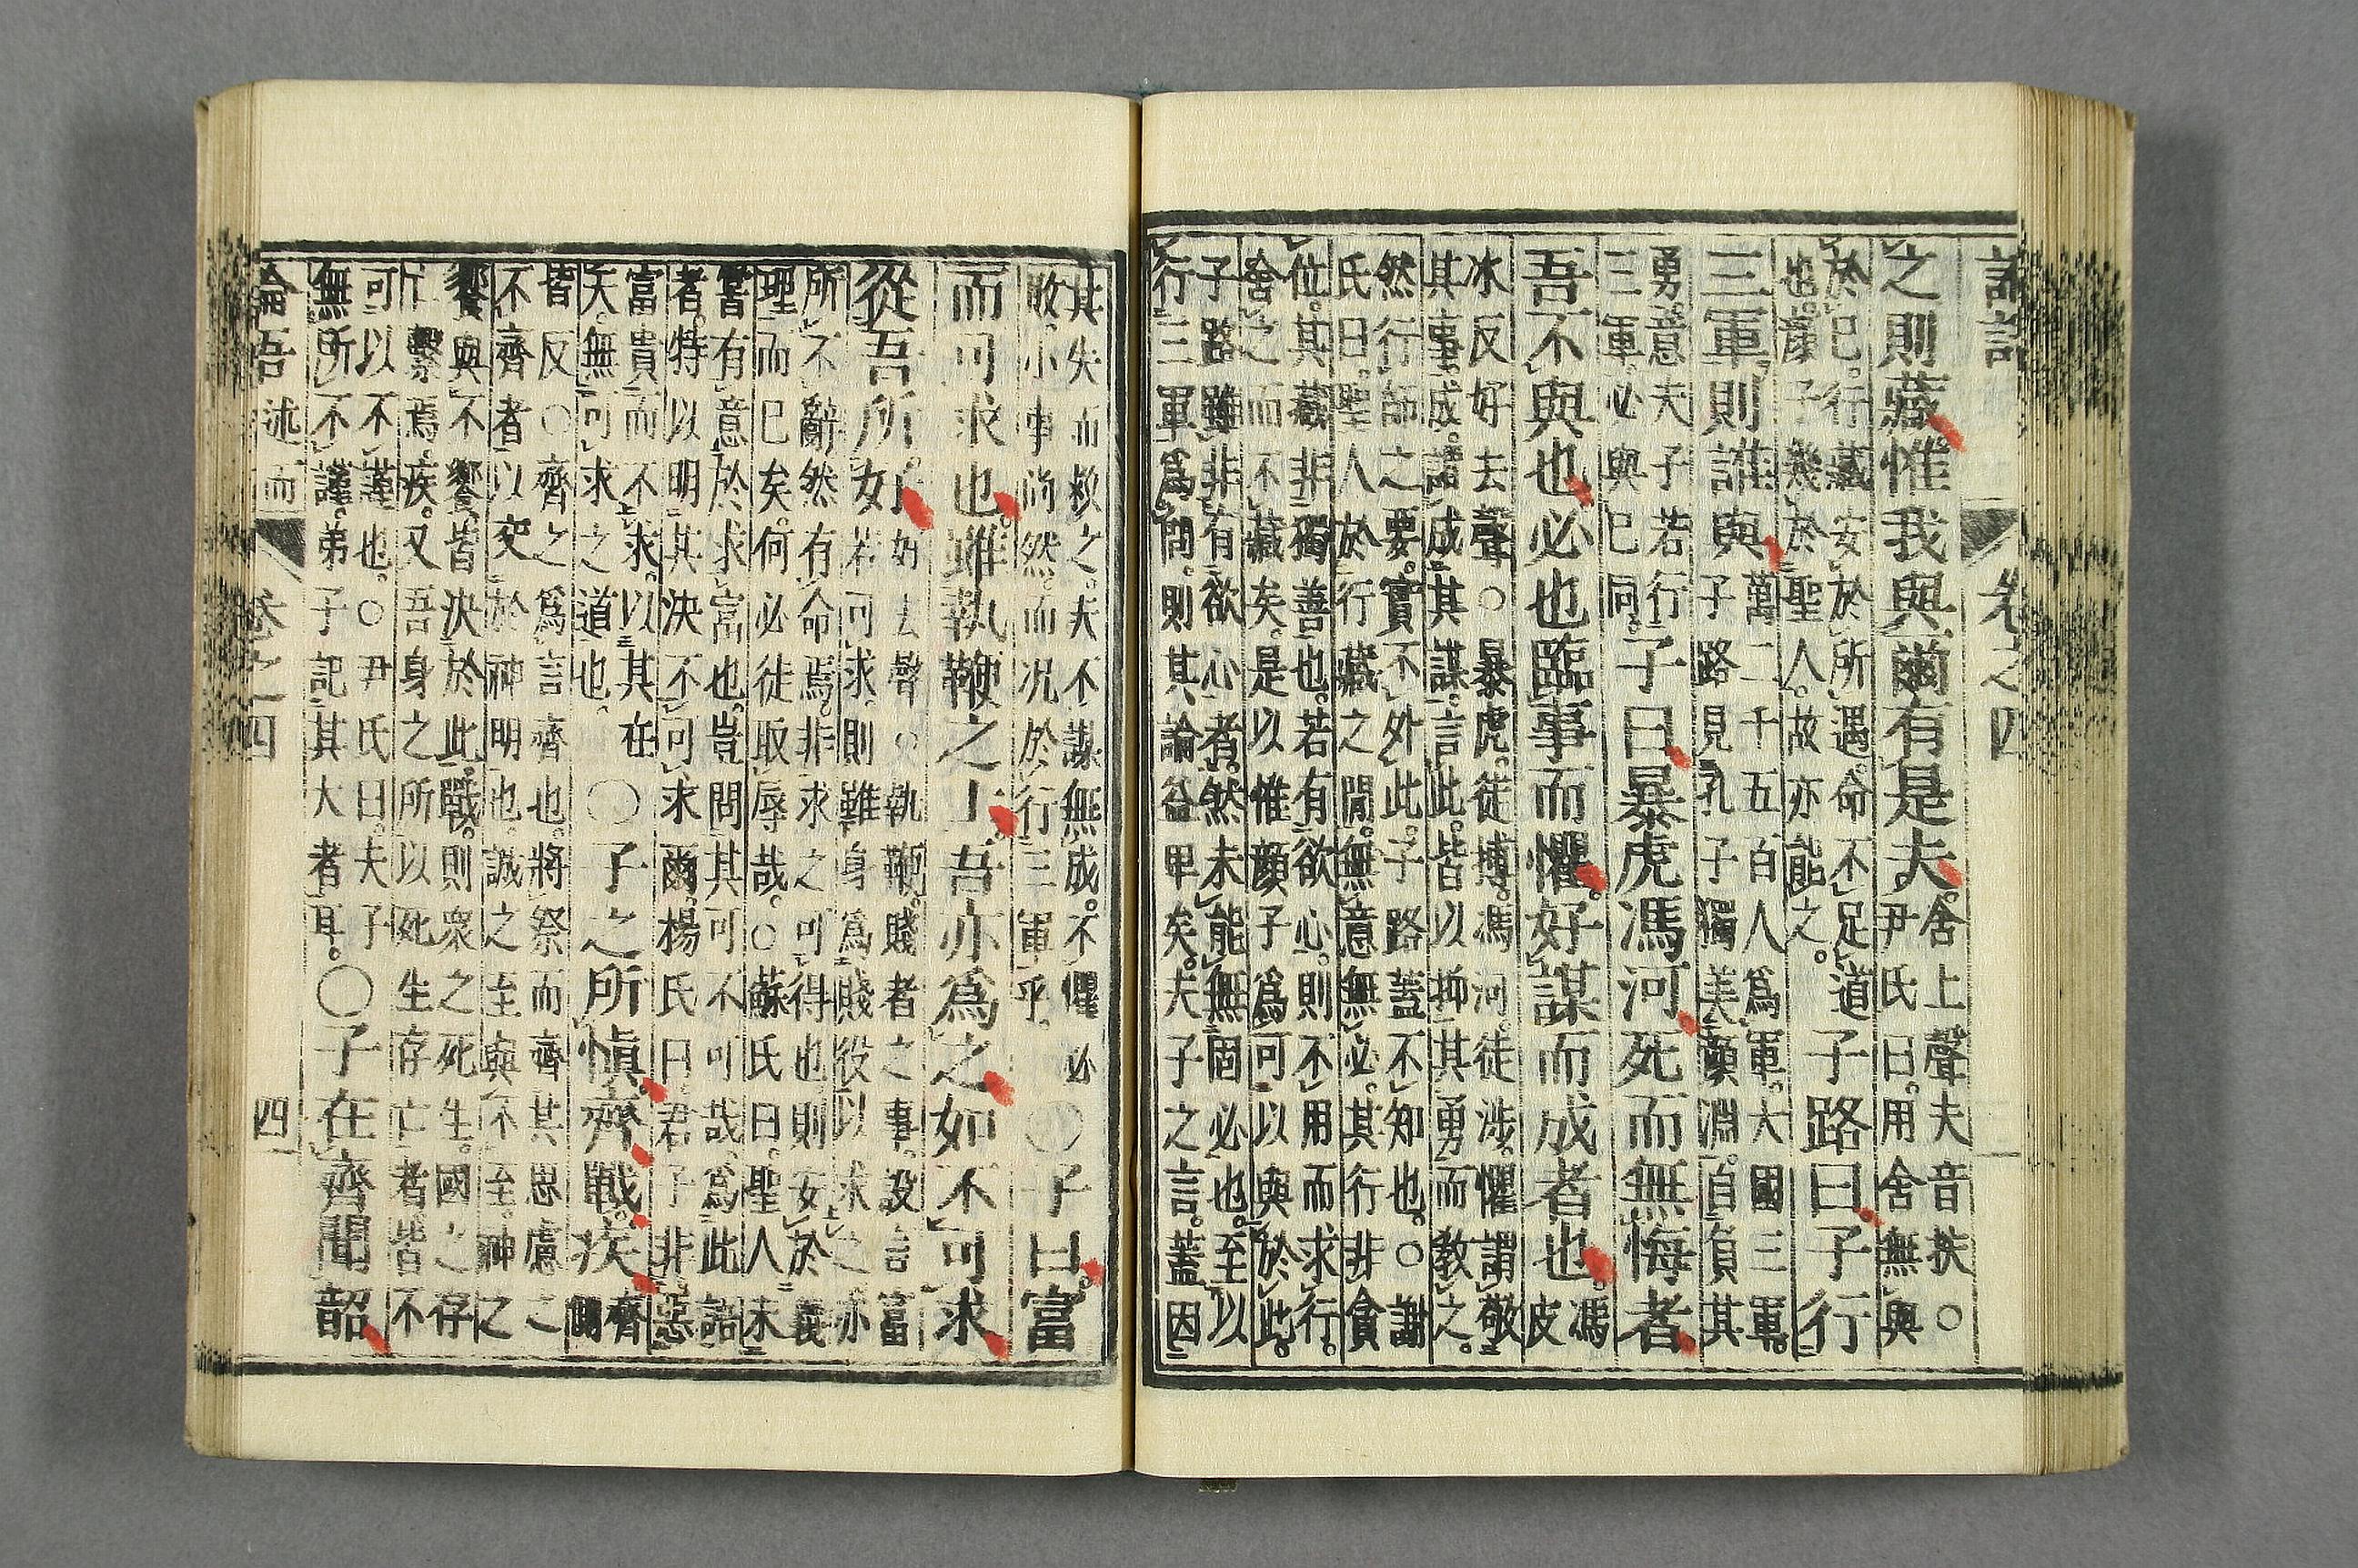 之則藏惟我與爾有是夫。
舍上聲夫音扶○
尹氏曰。用舍無與
於己。行藏安於所遇。命不足道
也。顏子幾於聖人。故亦能之。
子路曰。子行
三軍則誰與
萬二千五百人爲軍。大國三軍。
子路見孔子獨美顏淵。自負其
勇。意夫子若行
三軍。必與己同。
子曰暴虎馮河死而無悔者
吾不與也必也臨事而懼。好謀而成者也。
馮
皮
冰反好去聲。○暴虎。徒搏。馮河。徒涉。懼謂敬
其事。成。謂成其謀。言此。皆以抑其勇而教之。
然行師之要。實不外此。子路蓋不知也。○謝
氏曰。聖人於行藏之閒。無意無必。其行非貪
位。其藏非獨善也。若有欲心。則不用而求行。
舍之而不藏矣。是以惟顏子爲可以與於此。
子路雖非有欲心者。然未能無固必也。至以
行三軍爲問。則其論益卑矣。夫子之言。蓋因
其失而救之。夫不謀無成。不懼必
敗小事尚然。而况於行三軍乎
○子曰。富
而可求也。雖執鞭之士。吾亦爲之如不可求
從吾所好
好去聲。○執鞭。賤者之事。設言富
若可求。則雖身爲賤役以求之亦
所不辭然有命焉。非求之可得也則安於義
理而已矣。何必徒取辱哉。○蘇氏曰。聖人未
嘗有意於求富也。豈問其可不可哉。爲此語
者。特以明其決不可求爾。楊氏曰。君子非惡
富貴而不求。以其在
天。無可求之道也。
○子之所慎。齊。戰。疾。
齊
側
皆反○齊之爲言齊也。將祭而齊其思慮之
不齊者以交於神明也。誠之至與不至。神之
饗與不饗。皆決於此。戰。則衆之死生。國之存
亡繫焉。疾。又吾身之所以死生存亡者。皆不
可以不謹也。○尹氏曰。夫子
無所不謹。弟子記其大者耳。
○子在齊聞韶
論吾 述而 卷之四 四